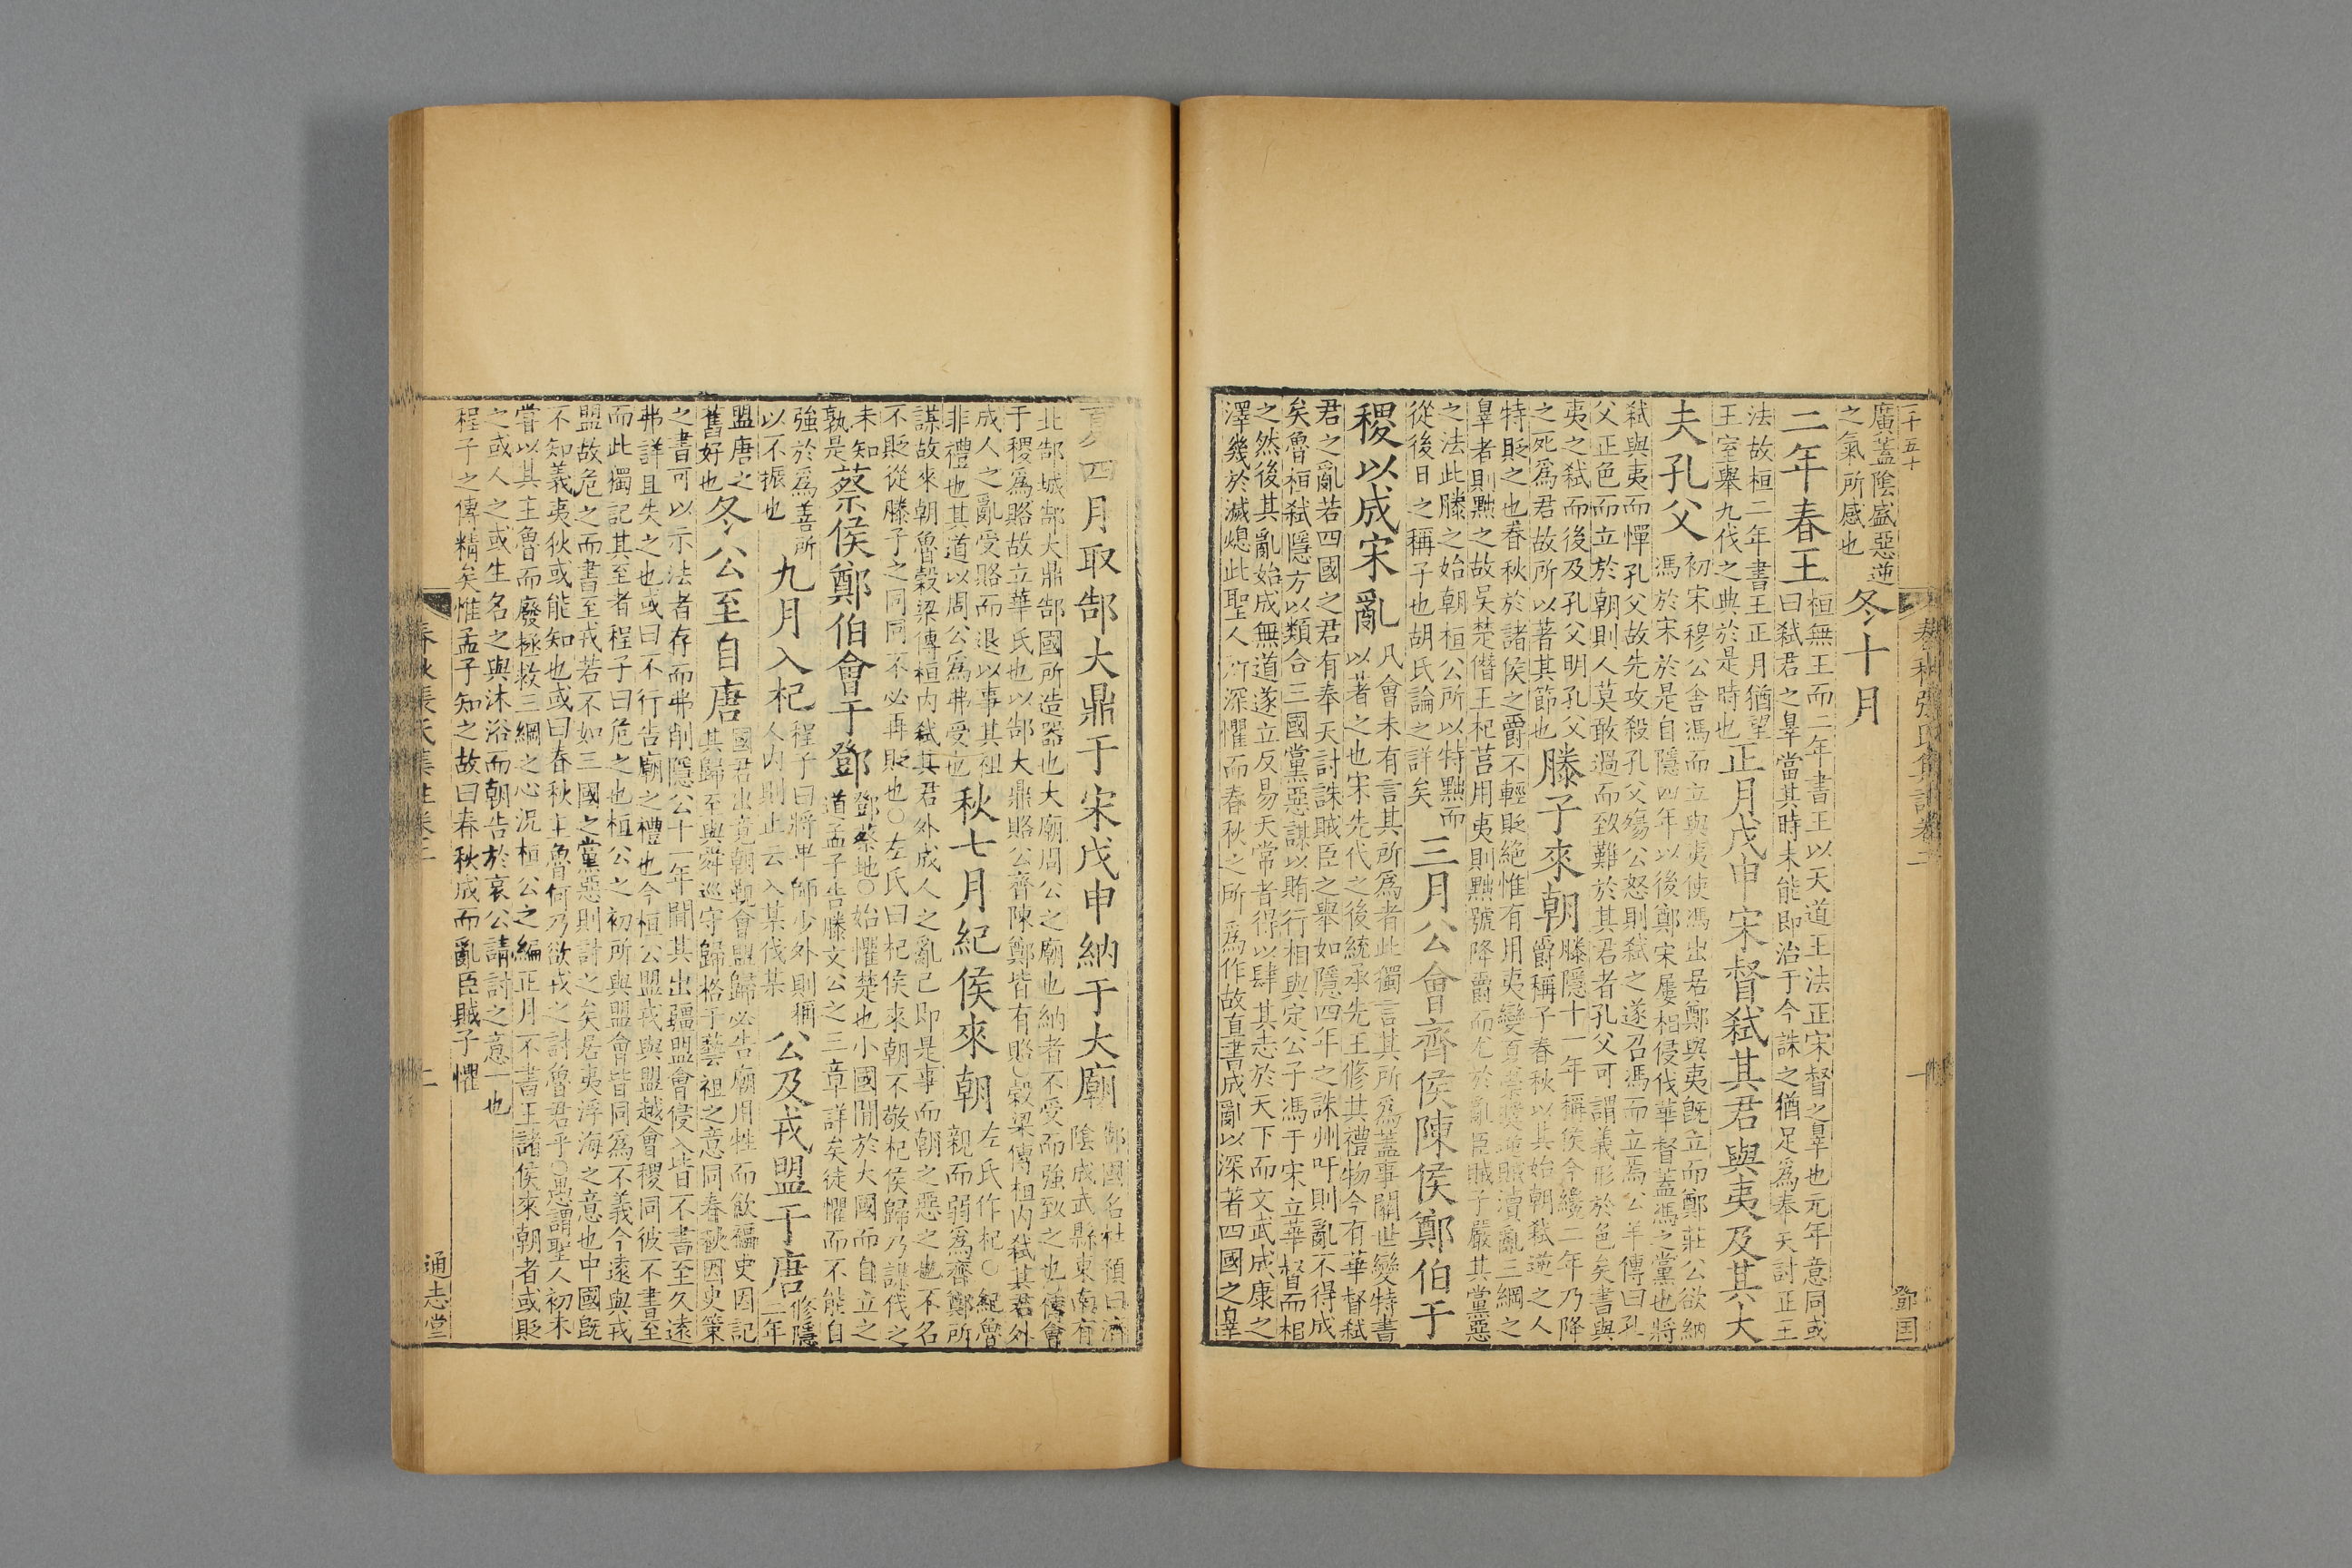 二十五十
廣蓋陰盛惡逆
之氣所感也
冬十月
二年春王
桓無王而二年書王以天道王法正宋督之辠也元年意同或
曰弑君之辠當其時未能即治于今誅之猶足爲奉天討正王
法故桓二年書王正月猶望
王室舉九伐之典於是時也
正月戊申宋督弑其君與夷及其大
夫孔父
初宋穆公舍馮而立與夷使馮出居鄭與夷旣立而鄭莊公欲納
馮於宋於是自隱四年以後鄭宋屢相侵伐華督蓋馮之黨也將
弑與夷而憚孔父故先攻殺孔父殤公怒則弑之遂召馮而立焉公羊傳曰孔
父正色而立於朝則人莫敢過而致難於其君者孔父可謂義形於色矣書與
夷之弑而後及孔父明孔父
之死爲君故所以著其節也
滕子來朝
滕隱十一年稱侯今纔二年乃降
爵稱子春秋以其始朝弑逆之人
特貶之也春秋於諸侯之爵不輕貶絶惟有用夷變夏黨奬逆賊瀆亂三綱之
辠者則黜之故吴楚僭王杞莒用夷則黜號降爵而尤於亂臣賊子嚴其黨惡
之法此滕之始朝桓公所以特黜而
從後日之稱子也胡氏論之詳矣
三月公會齊侯陳侯鄭伯于
稷以成宋亂
凡會未有言其所爲者此獨言其所爲蓋事關世變特書
以著之也宋先代之後統承先王修其禮物今有華督弑
君之亂若四國之君有奉天討誅賊臣之舉如隱四年之誅州吁則亂不得成
矣魯桓弑隱方以類合三國黨惡謀以賄行相與定公子馮于宋立華督而相
之然後其亂始成無道遂立反易天常者得以肆其志於天下而文武成康之
澤幾於滅熄此聖人所深懼而春秋之所爲作故直書成亂以深著四國之辠
春秋張氏集註卷二
一
鄧国
夏四月取郜大鼎于宋戊申納于大廟
郜國名杜預曰濟
陰成武縣東南有
北郜城郜大鼎郜國所造器也大廟周公之廟也納者不受而強致之也傳會
于稷爲賂故立華氏也以郜大鼎賂公齊陳鄭皆有賂○穀梁傳桓内弑其君外
成人之亂受賂而退以事其祖
非禮也其道以周公爲弗受也
秋七月紀侯來朝
左氏作杞○紀魯
親而弱爲齊鄭所
謀故來朝魯穀梁傳桓内弑其君外成人之亂已即是事而朝之惡之也不名
不貶從滕子之同同不必再貶也○左氏曰杞侯來朝不敬杞侯歸乃謀伐之
未知
孰是
蔡侯鄭伯會于鄧
鄧蔡地○始懼楚也小國間於大國而自立之
道孟子告滕文公之三章詳矣徒懼而不能自
強於爲善所
以不振也
九月入杞
程子曰將卑師少外則稱
人内則止云入某伐某
公及戎盟于唐
修隱
二年
盟唐之
舊好也
冬公至自唐
國君出竟朝覲會盟歸必告廟用牲而飮福史因記
其歸至與舜巡守歸格于藝祖之意同春秋因史策
之書可以示法者存而弗削隱公十一年間其出疆盟會侵入皆不書至久遠
弗詳且失之也或曰不行告廟之禮也今桓公盟戎與盟越會稷同彼不書至
而此獨記其至者程子曰危之也桓公之初所與盟會皆同爲不義今遠與戎
盟故危之而書至戎若不如三國之黨惡則討之矣居夷浮海之意也中國旣
不知義夷狄或能知也或曰春秋主魯何乃欲戎之討魯君乎○愚謂聖人初未
嘗以其主魯而廢拯救三綱之心況桓公之編正月不書王諸侯來朝者或貶
之或人之或生名之與沐浴而朝告於哀公請討之意一也
程子之傳精矣惟孟子知之故曰春秋成而亂臣賊子懼
春秋張氏集註卷二
二
通志堂